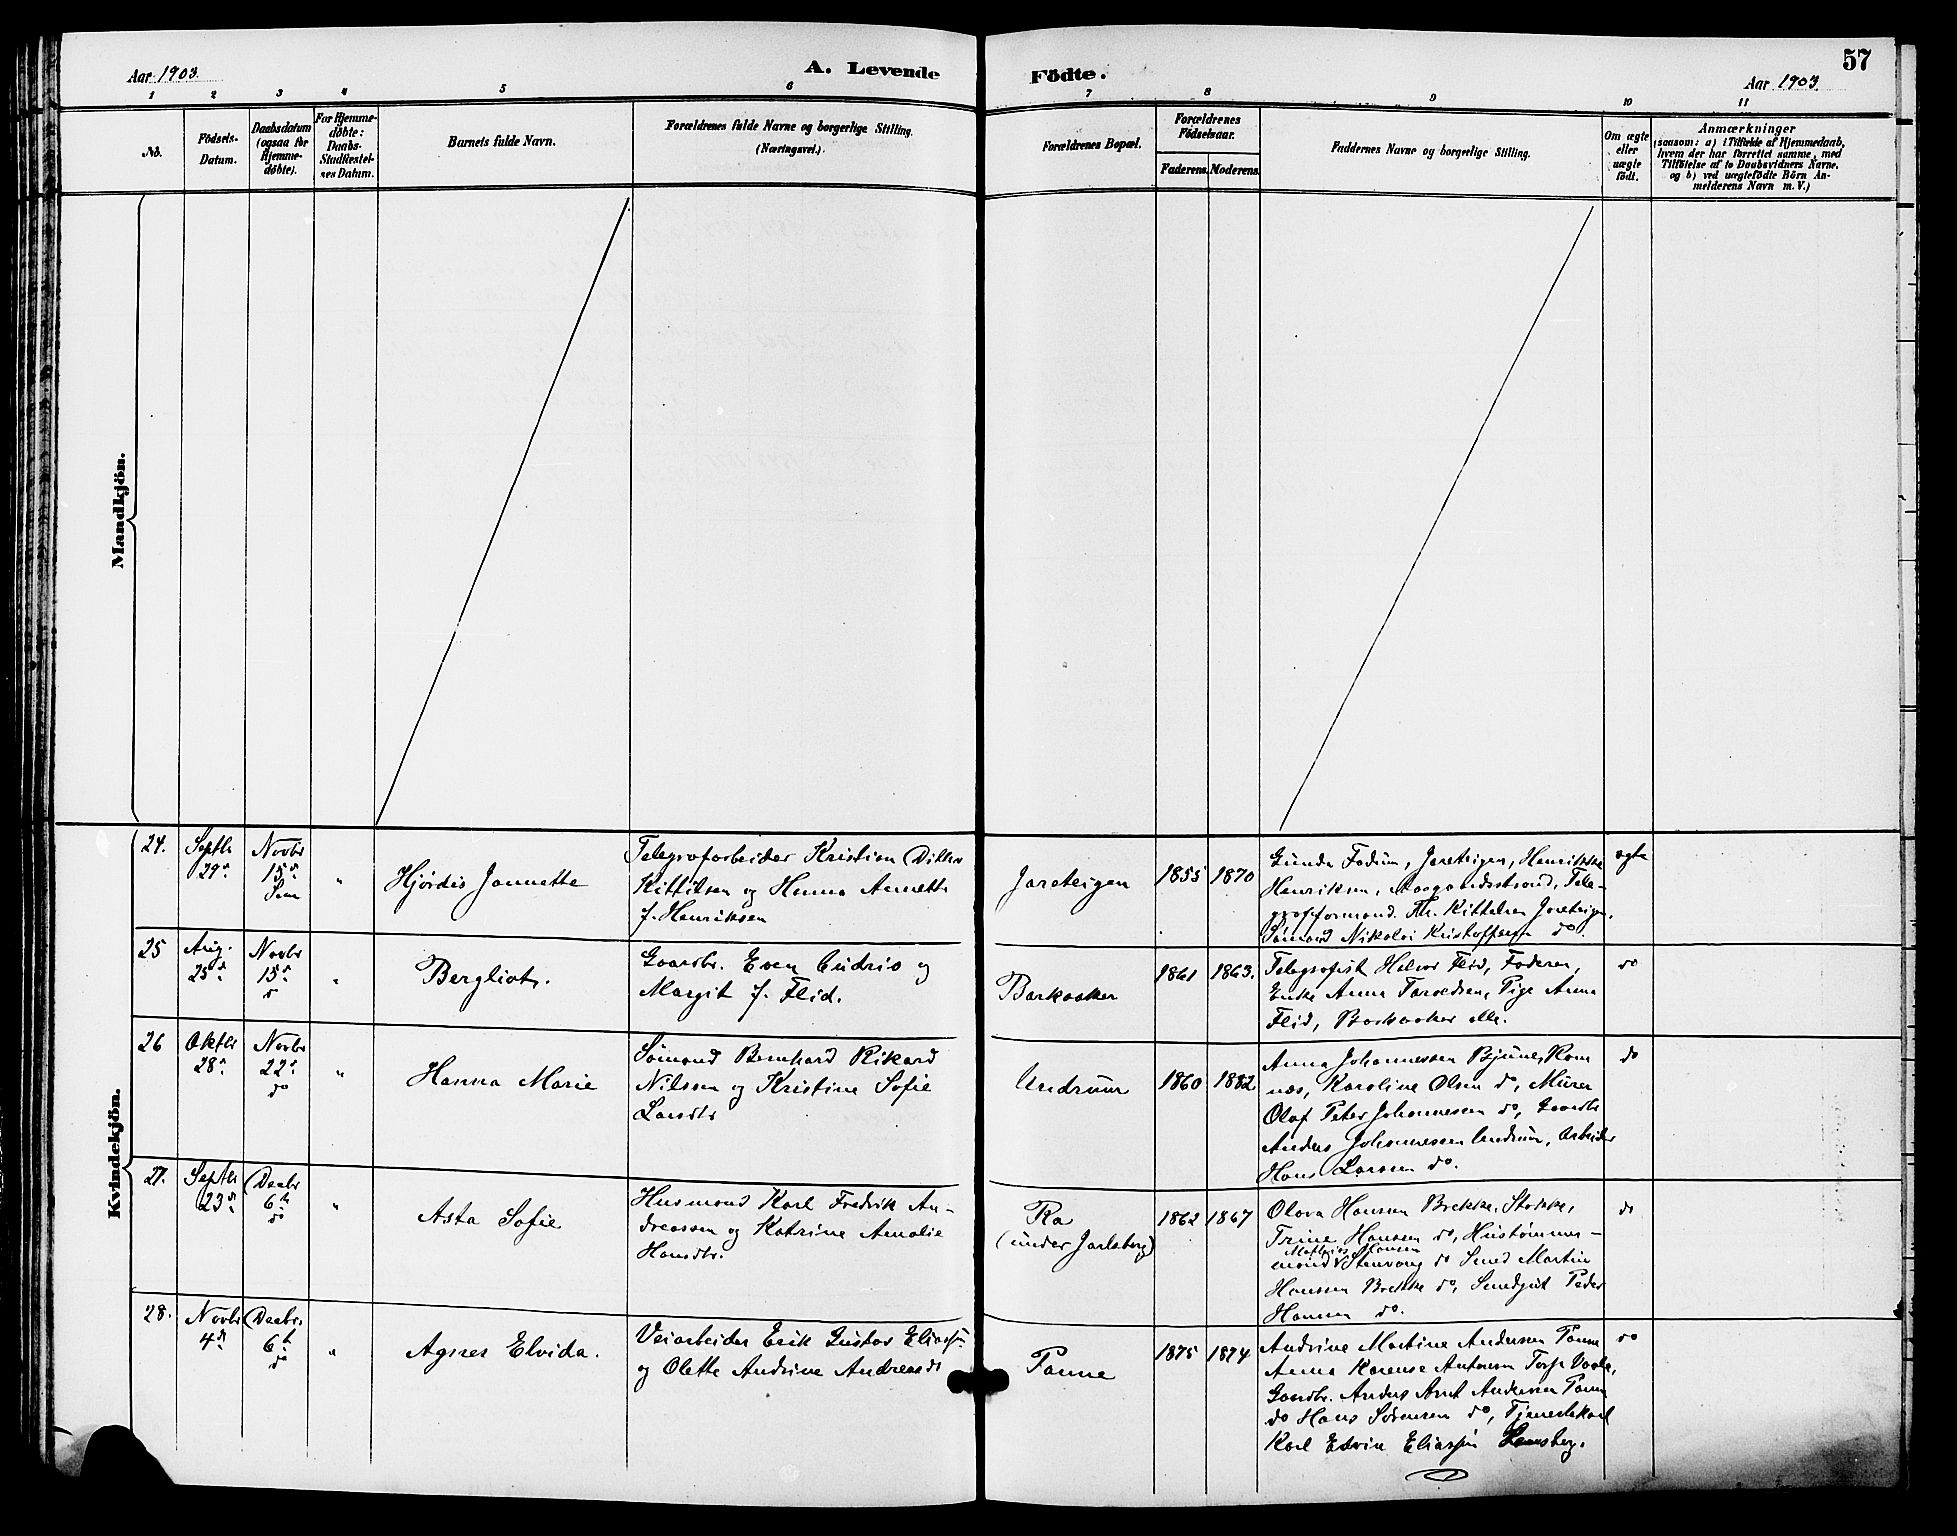 57
Aar 1903.
A. Levende
Födte.
Aar 1903
1 2 3 4 5 6
7 8 9 10 11
No.
Födsels-
Datum.
Daabsdatum
(ogsaa for
Hjemme-
döbte).
For Hjemme-
döbte:
Daabs-
Stadfæstel-
ses Datum.
Barnets fulde Navn.
Forældrenes fulde Navne og borgerlige Stilling.
(Næringsvei).
Forældrenes Bopæl.
Forældrenes
Födselsaar.
Faderens. Moderens.
Faddernes Navne og borgerlige Stilling.
Om ægte
eller
uægte
födt.
Anmærkninger
(saasom: a) i Tilfælde af Hjemmedaab,
hvem der har forrettet samme, med
Tilföielse af to Daabsvidners Navne.
og b) ved uægtefödte Börn An-
melderens Navn m. V.)
Mandkjön.
Kvindekjön.
24.
Septb
29de
Novbr
15de
"
Hjørdis Jannette
Telegrafarbeider Kristian
Kittilsen og Hanna Annette
f. Henriksen
Jareteigen
1855
1870
Gunda Fodum, Jareteigen, Henrikke
Henriksen, Aasgaardsstrand, Tele-
grafformand. Th. Kittelsen Jareteigen.
Sømand Nikolai Kristoffersen do.
ægte
25
Aug.
25de
Novbr
15de
d
"
Bergliot.
Gaardbr. Even Undrio og
Margit f. Flid.
Barkaaker
1861
1863.
Telegrafist Halvor Flid, Faderen,
Enke Anna Taraldsen, Pige Anna
Flid, Barkaaker alle.
do
26
Oktb
28de
Novbr
22de
do
"
Hanna Marie
Sømand Bernhard Rikard
Nilssen og Kristine Sofie
Larsdtr
Undrum
1860
1882
Anna Johannessen Bjune, Ram
næs, Karoline Olsen do, Murer
Olaf Peter Johannessen do, Gaardbr
Anders Johannessen Undrum, Arbeider
Hans Larsen do.
do
27.
Septb
23de
Decbr
6te
do
"
Asta Sofie
Husmand Karl Fredrik An-
dreassen og Katrine Amalie
Hansdtr.
Ra
(under Jarlsberg)
1862
1867
Olava Hansen Brekke, Stokke,
Trine Hanssen do, Hustømmer-
Mathias Hansen
mand Stenvang do Smed Martin
Hanssen Brekke do, Smedgut Peder
Hansen do.
do
28.
Novbr
4de
Decbr.
6te
do
"
Agnes Elvida.
Veiarbeider Erik Gustav Eliassen
og Olette Andrine Andreasdt
Tanne
1875
1874
Andrine Martine Andersen Tanne
Anna Karense Antonsen Torp Vaale,
Gaardbr. Anders Arnt Andersen Tanne
do Hans Sørensen do, Tjenestekarl
Karl Edvin Eliassen
do